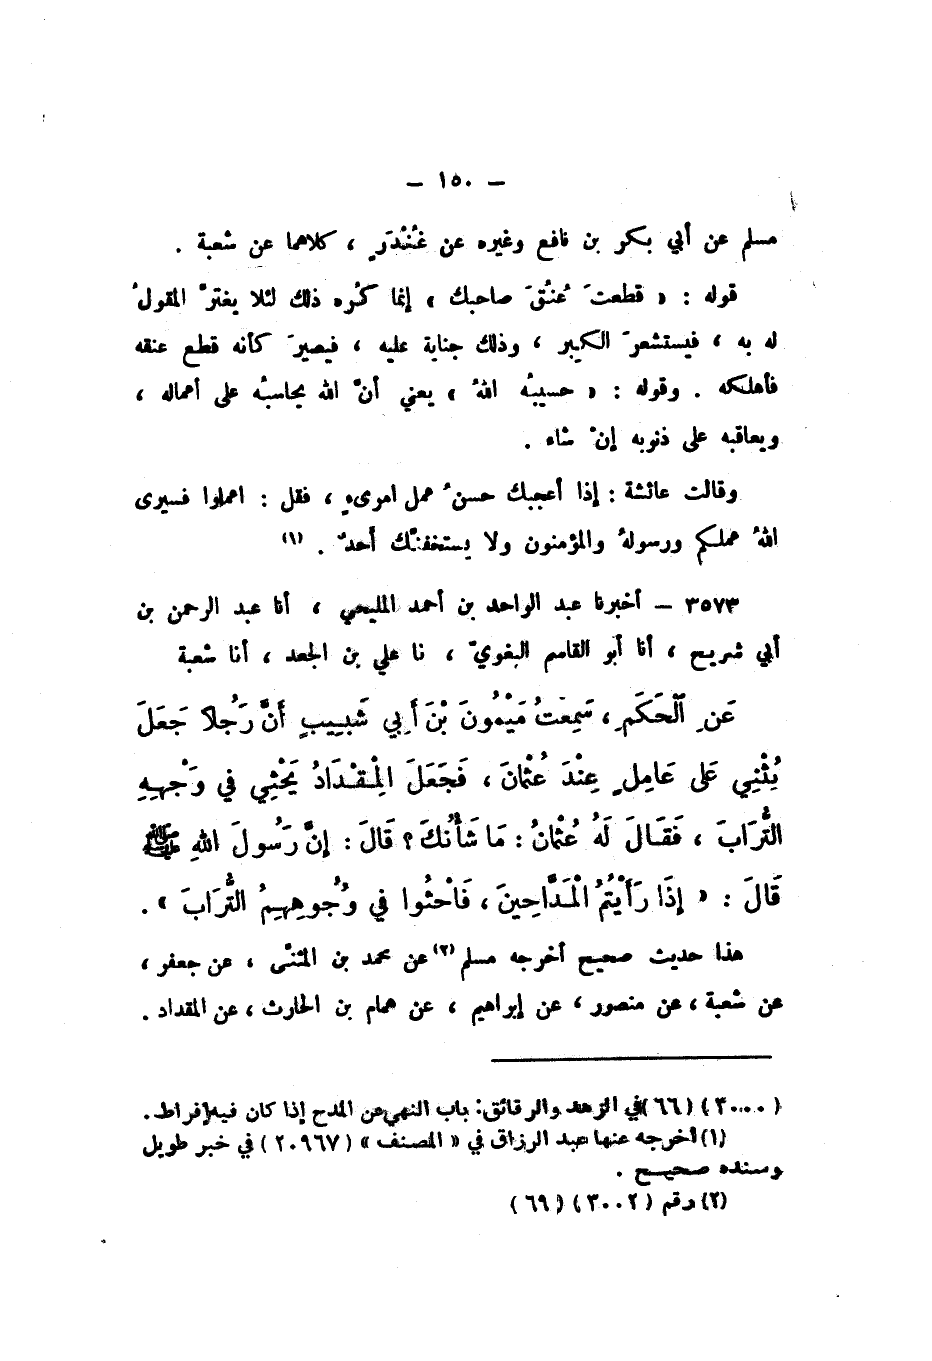 – ١٥٠ –
مسلم عن أبي بكر بن نافع وغيره عن غُنْدَرٍ ، كلاهما عن شعبة .
قوله : « قطعتَ عُنُقَ صاحبك » إنما كُره ذلك لئلا يغترَّ المقولُ
له به ، فيستشعرَ الكبر ، وذلك جناية عليه ، فيصيرَ كأنه قطع عنقه
فأهلكه . وقوله : « حسيبُه اللهُ » يعني أنَّ الله يحاسبُه على أعماله ،
ويعاقبه على ذنوبه إنْ شاء .
وقالت عائشة : إذا أعجبك حسنُ عمل امرىءٍ ، فقل : اعملوا فسيرى
اللهُ عملكم ورسولهُ والمؤمنون ولا يستخفنَّك أحدٌ . (١)
٣٥٧٣ – أخبرنا عبد الواحد بن أحمد المليحي ، أنا عبد الرحمن بن
أبي شريح ، أنا أبو القاسم البغويّ ، نا علي بن الجعد ، أنا شعبة
عَنِ ٱلْحَكَمِ ، سَمِعْتُ مَيْمُونَ بْنَ أَبِي شَبِيبٍ أَنَّ رَجُلًا جَعَلَ
يُثْنِي عَلَى عَامِلٍ عِنْدَ عُثْمَانَ ، فَجَعَلَ الْمِقْدَادُ يَحْثِي فِي وَجْهِهِ
التُّرَابَ ، فَقَالَ لَهُ عُثْمَانُ : مَا شَأْنُكَ ؟ قَالَ : إِنَّ رَسُولَ اللهِ ﷺ
قَالَ : « إِذَا رَأَيْتُمُ الْمَدَّاحِينَ ، فَاحْثُوا فِي وُجُوهِهِمُ التُّرَابَ » .
هذا حديث صحيح أخرجه مسلم (٢) عن محمد بن المثنَّى ، عن جعفر ،
عن شعبة ، عن منصور ، عن إبراهيم ، عن همام بن الحارث ، عن المقداد .
( ٣٠٠٠ ) (٦٦) في الزهد والرقائق: باب النهي عن المدح إذا كان فيه إفراط .
(١) أخرجه عنها عبد الرزاق في « المصنف » (٢٠٩٦٧) في خبر طويل
وسنده صحيح .
(٢) رقم (٣٠٠٢) (٦٩)